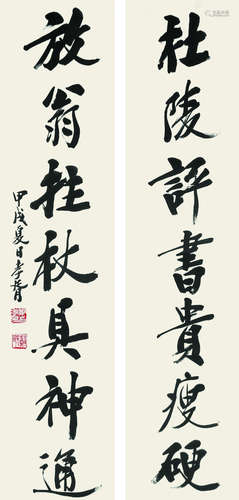 杜陵評書貴瘦硬
放翁拄杖具神通
甲戌夏日孝胥